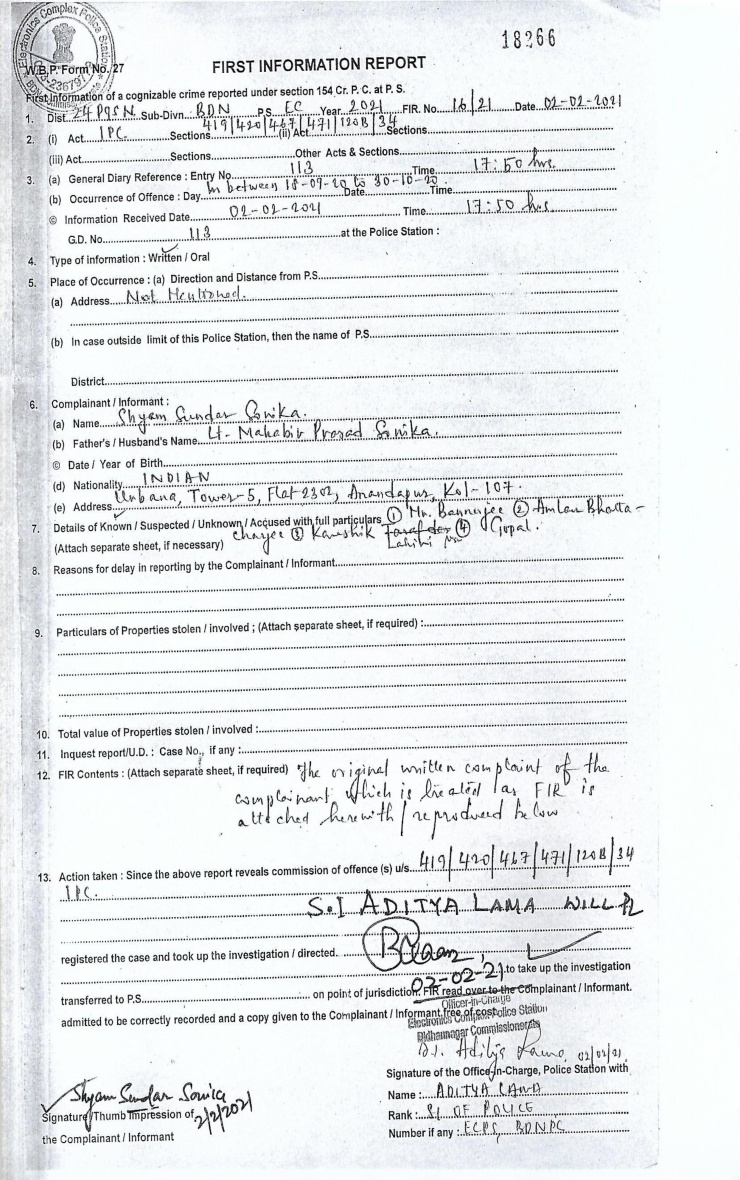 Electronics Complex Police Station
18266
W.B.P. Form No. 27
FIRST INFORMATION REPORT
First Information of a cognizable crime reported under section 154 Cr. P. C. at P. S.
1. Dist. 24 PGSN Sub-Divn. BDN P.S. EC Year 2021 FIR. No. 16/21 Date 02-02-2021
419/420/467/471/120B/34
2. (i) Act IPC Sections (ii) Act Sections
(iii) Act Sections Other Acts & Sections
3. (a) General Diary Reference : Entry No. 113 Time 17:50 hrs.
In between 18-09-20 to 30-10-20
(b) Occurrence of Offence : Day Date Time
© Information Received Date 02-02-2021 Time 17:50 hrs
G.D. No. 113 at the Police Station :
4. Type of information : Written / Oral
5. Place of Occurrence : (a) Direction and Distance from P.S.
(a) Address Not Mentioned.
(b) In case outside limit of this Police Station, then the name of P.S.
District
6. Complainant / Informant :
(a) Name Shyam Sundar Sonika.
(b) Father's / Husband's Name Lt. Mahabir Prosad Sonika.
© Date / Year of Birth
(d) Nationality INDIAN
(e) Address Urbana, Tower-5, Flat 2302, Anandapur, Kol-107.
7. Details of Known / Suspected / Unknown / Accused with full particulars ① Mr. Bannerjee ② Amlan Bhatta-
(Attach separate sheet, if necessary) charjee ③ Kaushik Tarafdar ④ Gopal.
Lahiri
8. Reasons for delay in reporting by the Complainant / Informant
9. Particulars of Properties stolen / involved ; (Attach separate sheet, if required) :
10. Total value of Properties stolen / involved :
11. Inquest report/U.D. : Case No., if any :
12. FIR Contents : (Attach separate sheet, if required) The original written complaint of the
complainant which is treated as FIR is
attached herewith / reproduced below
13. Action taken : Since the above report reveals commission of offence (s) u/s. 419/420/467/471/120B/34
IPC.
S.I ADITYA LAMA WILL
registered the case and took up the investigation / directed.
02-02-21 to take up the investigation
transferred to P.S. on point of jurisdiction. FIR read over to the Complainant / Informant.
Officer-in-Charge
admitted to be correctly recorded and a copy given to the Complainant / Informant free of cost
Electronics Complex Police Station
Bidhannagar Commissionerate
S.I. Aditya Lama 02/02/21
Signature of the Office-in-Charge, Police Station with
Shyam Sundar Sonica
2/2/2021
Name : ADITYA LAMA
Signature/Thumb Impression of
Rank : SI OF POLICE
the Complainant / Informant
Number if any : ECPS, BDNPC